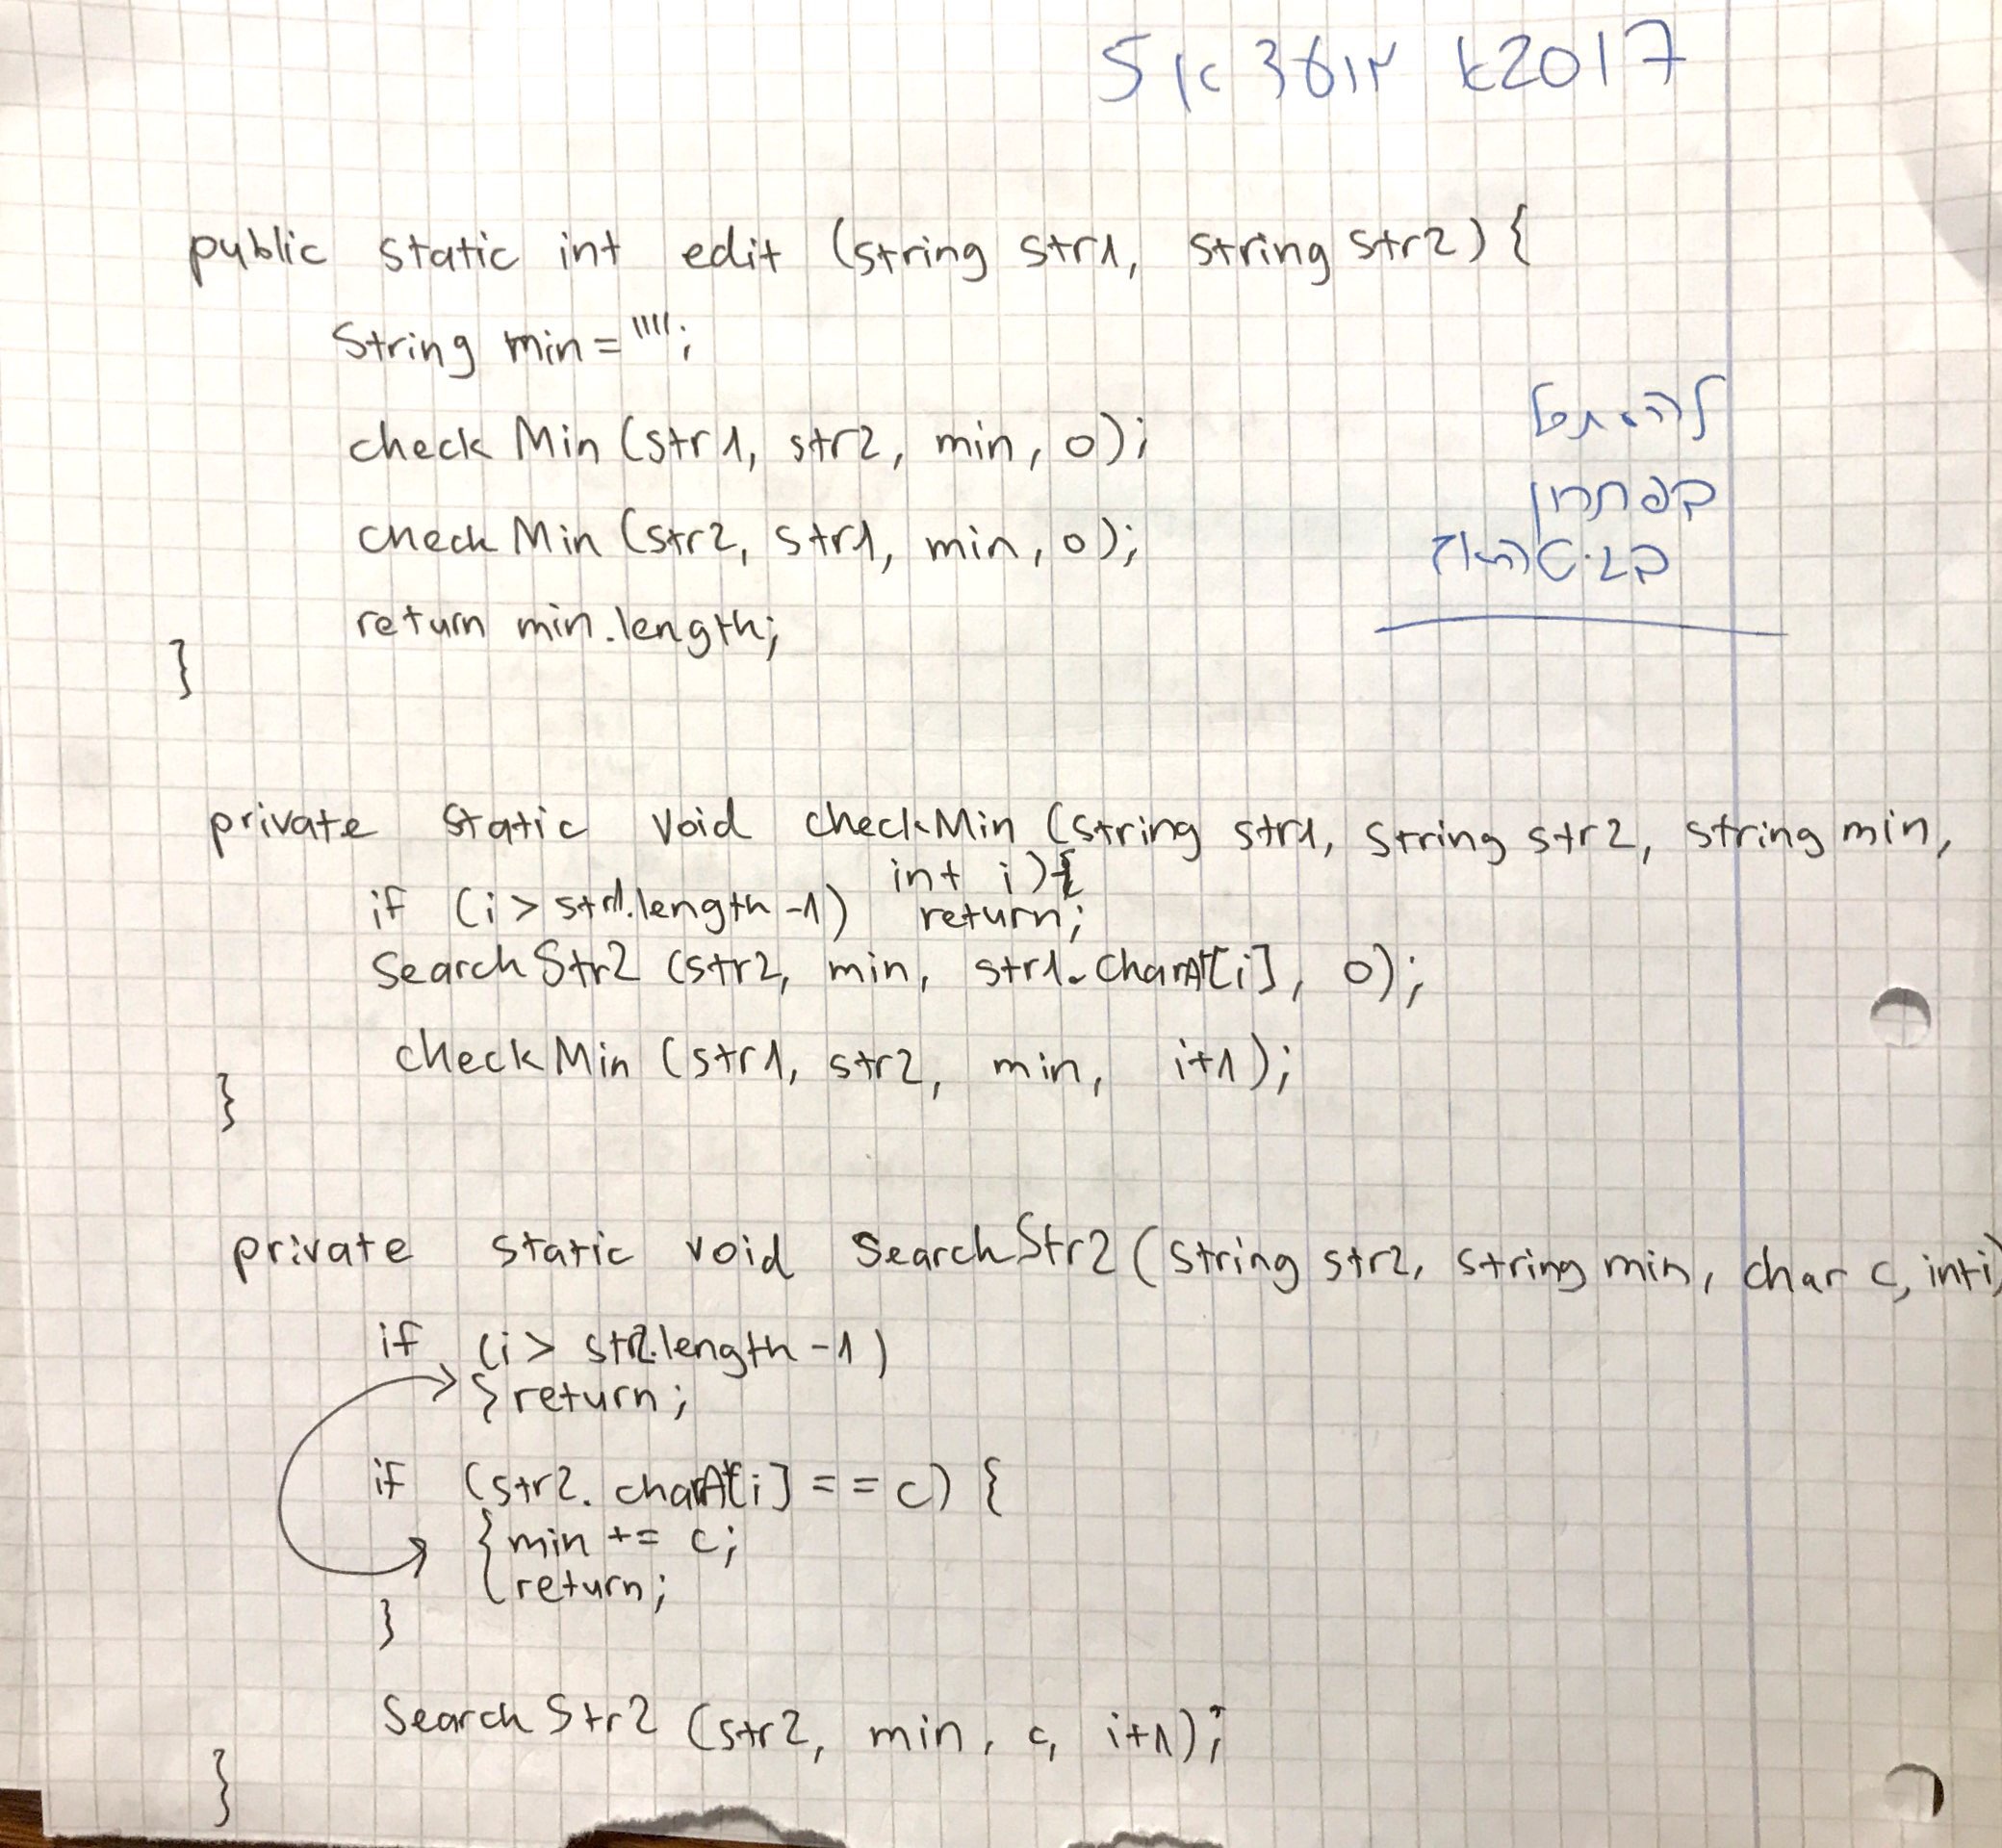 2017
public static int edit (string str1, string str2) {
String min = "";
check Min (str1, str2, min, 0);
check Min (str2, str1, min, 0);
return min.length;
}
בפתרון
private static void checkMin (string str1, string str2, string min,
int i) {
if (i > str1.length -1) return;
Search Str2 (str2, min, str1. CharAt[i], 0);
check Min (str1, str2, min, i+1);
}
private static void Search Str2 (string str2, string min, char c, int i)
if (i > str2.length -1)
} return;
if (str2. charAt[i] == c) {
{ min += c;
return;
}
Search Str2 (str2, min, c, i+1);
}